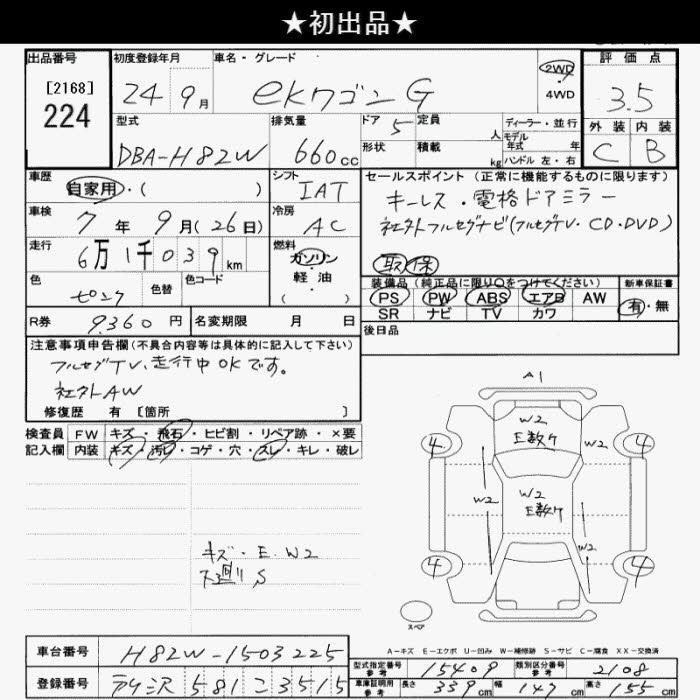 ★初出品★
出品番号
[2168]
224
初度登録年月
24 9月
車名・グレード
ekワゴン G
2WD
4WD
評価点
3.5
型式
DBA-H82W
排気量
660cc
ドア 5
形状
定員 人
積載 kg
ディーラー・並行
モデル
年式 年
ハンドル 左・右
外装 内装
C B
車歴
自家用・( )
シフト
IAT
車検
7年 9月(26日)
冷房
AC
走行
6万1千039km
燃料
ガソリン
軽・油
( )
色
ピンク
色替
色コード
セールスポイント(正常に機能するものに限ります)
キーレス・電格ドアミラー
社外フルセグナビ(フルセグTV・CD・DVD)
取保
装備品(純正品に限り○をつけてください)
PS PW ABS エアB AW
SR ナビ TV カワ
新車保証書
有・無
R券 9,360円
名変期限 月 日
後日品
注意事項申告欄(不具合内容等は具体的に記入して下さい)
フルセグTV、走行中OKです。
社外AW
修復歴 有 [箇所 ]
検査員
記入欄
FW キズ・飛石・ヒビ割・リペア跡・×要
内装 キズ・汚レ・コゲ・穴・スレ・キレ・破レ
キズ・E.W2
下廻り S
A1
W2
E数ケ
W2
4 4
W2
W2
E数ケ
W2
4 4
スペア
A-キズ E-エクボ U-凹み W-補修跡 S-サビ C-腐食 XX-交換済
車台番号 H82W-1503225
登録番号 581 こ 3515
型式指定番号
参考
15409
類別区分番号
参考
2108
車庫証明用
参考
長さ 339cm 幅 147cm 高さ 155cm